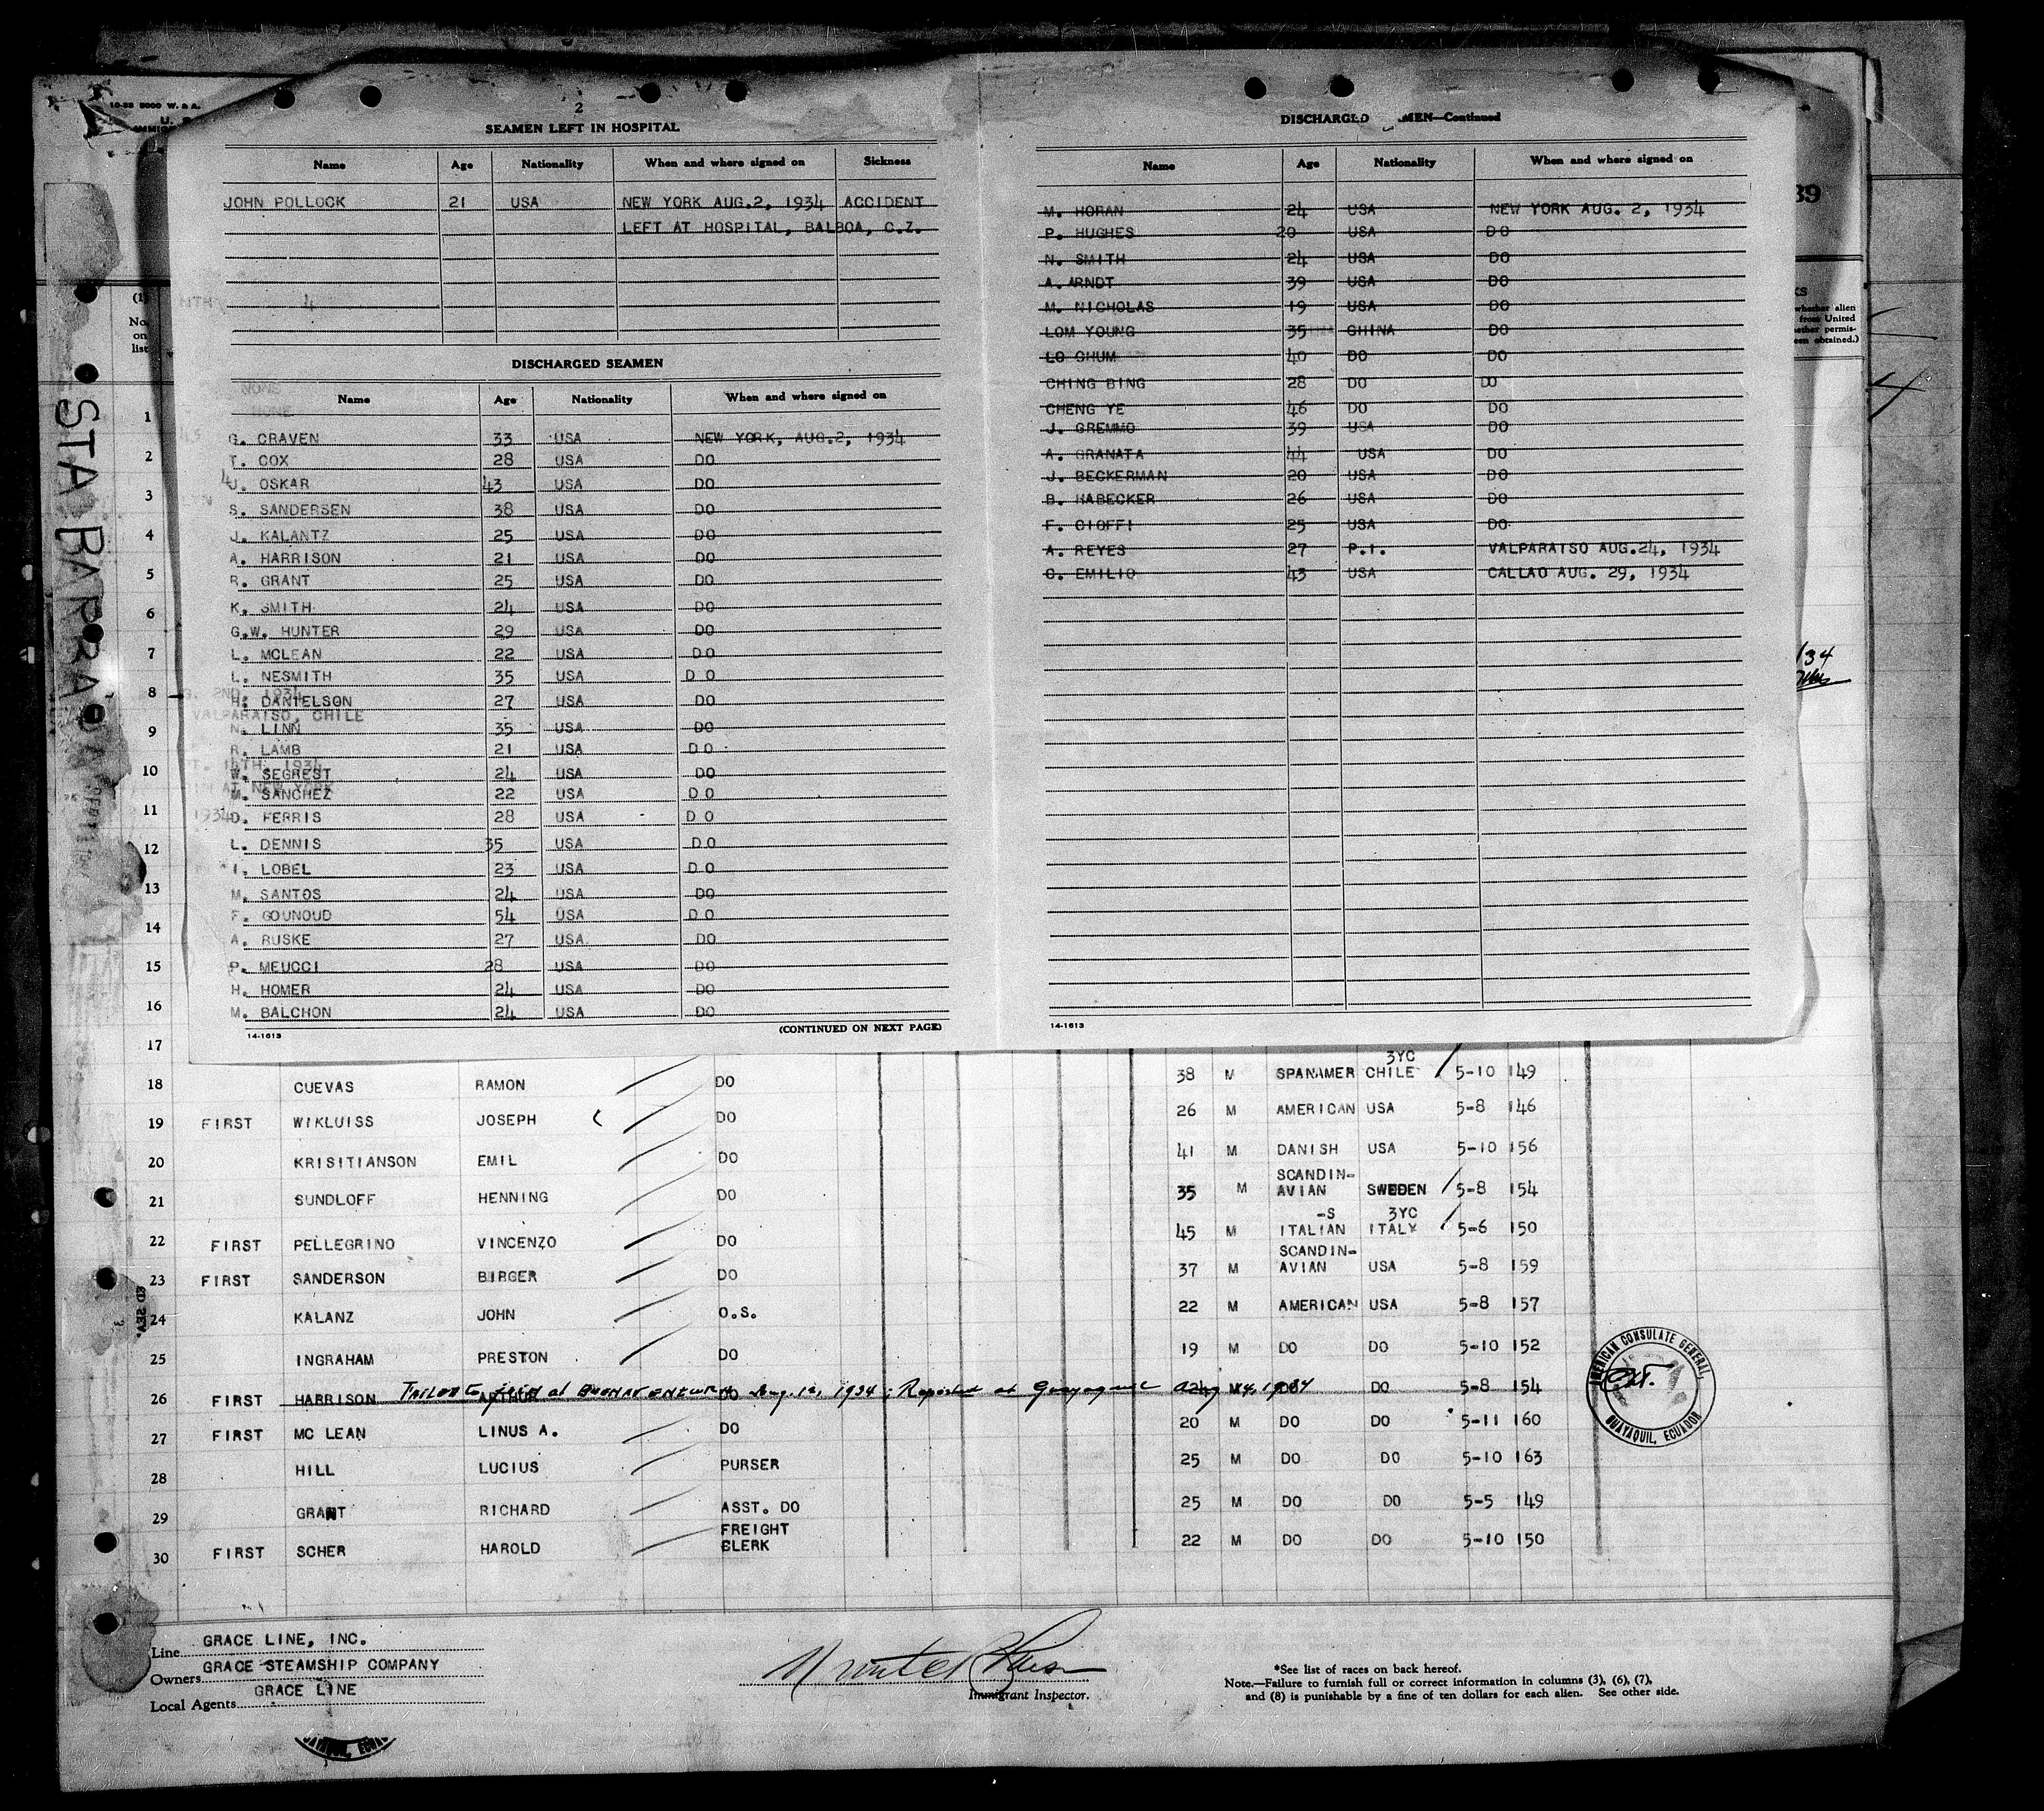 10-33 5000 W. & A.
2
SEAMEN LEFT IN HOSPITAL
Name Age Nationality When and where signed on Sickness
JOHN POLLOCK 21 USA NEW YORK AUG.2, 1934 ACCIDENT
LEFT AT HOSPITAL, BALBOA, C.Z.
DISCHARGED SEAMEN
Name Age Nationality When and where signed on
G. CRAVEN 33 USA NEW YORK, AUG.2, 1934
T. COX 28 USA DO
J. OSKAR 43 USA DO
S. SANDERSEN 38 USA DO
J. KALANTZ 25 USA DO
A. HARRISON 21 USA DO
R. GRANT 25 USA DO
K. SMITH 24 USA DO
G.W. HUNTER 29 USA DO
L. MCLEAN 22 USA DO
L. NESMITH 35 USA DO
H. DANIELSON 27 USA DO
VALPARAISO, CHILE
N. LINN 35 USA DO
R. LAMB 21 USA DO
W. SEGREST 24 USA DO
M. SANCHEZ 22 USA DO
D. FERRIS 28 USA DO
L. DENNIS 35 USA DO
I. LOBEL 23 USA DO
M. SANTOS 24 USA DO
F. GOUNOUD 54 USA DO
A. RUSKE 27 USA DO
P. MEUCCI 28 USA DO
H. HOMER 24 USA DO
M. BALCHON 24 USA DO
14-1613 (CONTINUED ON NEXT PAGE)
DISCHARGED MEN—Continued
Name Age Nationality When and where signed on
M. HORAN 24 USA NEW YORK AUG. 2, 1934
P. HUGHES 20 USA DO
N. SMITH 24 USA DO
A. ARNDT 39 USA DO
M. NICHOLAS 19 USA DO
LOM YOUNG 35 CHINA DO
LO CHUM 40 DO DO
CHING BING 28 DO DO
CHENG YE 46 DO DO
J. GREMMO 39 USA DO
A. GRANATA 44 USA DO
J. BECKERMAN 20 USA DO
B. HABECKER 26 USA DO
F. CIOFFI 25 USA DO
A. REYES 27 P.I. VALPARAISO AUG.24, 1934
C. EMILIO 43 USA CALLAO AUG. 29, 1934
14-1613
39
whether alien
from United
ether permis-
een obtained.)
/34
4
STA BARBARA
(1)
No.
on
list
1
2
3
4
5
6
7
8
9
10
11
12
13
14
15
16
17
18 CUEVAS RAMON DO 38 M SPANAMER 3YC CHILE 5-10 149
19 FIRST WIKLUISS JOSEPH DO 26 M AMERICAN USA 5-8 146
20 KRISITIANSON EMIL DO 41 M DANISH USA 5-10 156
21 SUNDLOFF HENNING DO 35 M SCANDIN-AVIAN SWEDEN 5-8 154
22 FIRST PELLEGRINO VINCENZO DO 45 M -S ITALIAN 3YC ITALY 5-6 150
23 FIRST SANDERSON BIRGER DO 37 M SCANDIN-AVIAN USA 5-8 159
24 KALANZ JOHN O.S. 22 M AMERICAN USA 5-8 157
25 INGRAHAM PRESTON DO 19 M DO DO 5-10 152
26 FIRST HARRISON ARTHUR DO M DO 5-8 154
Failed to join at Buenaventura Aug. 12, 1934; Reported at Guayaquil Aug 14, 1934
27 FIRST MC LEAN LINUS A. DO 20 M DO DO 5-11 160
28 HILL LUCIUS PURSER 25 M DO DO 5-10 163
29 GRANT RICHARD ASST. DO 25 M DO DO 5-5 149
30 FIRST SCHER HAROLD FREIGHT CLERK 22 M DO DO 5-10 150
AMERICAN CONSULATE GENERAL,
GUAYAQUIL, ECUADOR
Line GRACE LINE, INC.
Owners GRACE STEAMSHIP COMPANY
Local Agents GRACE LINE
Immigrant Inspector.
*See list of races on back hereof.
Note.—Failure to furnish full or correct information in columns (3), (6), (7),
and (8) is punishable by a fine of ten dollars for each alien. See other side.